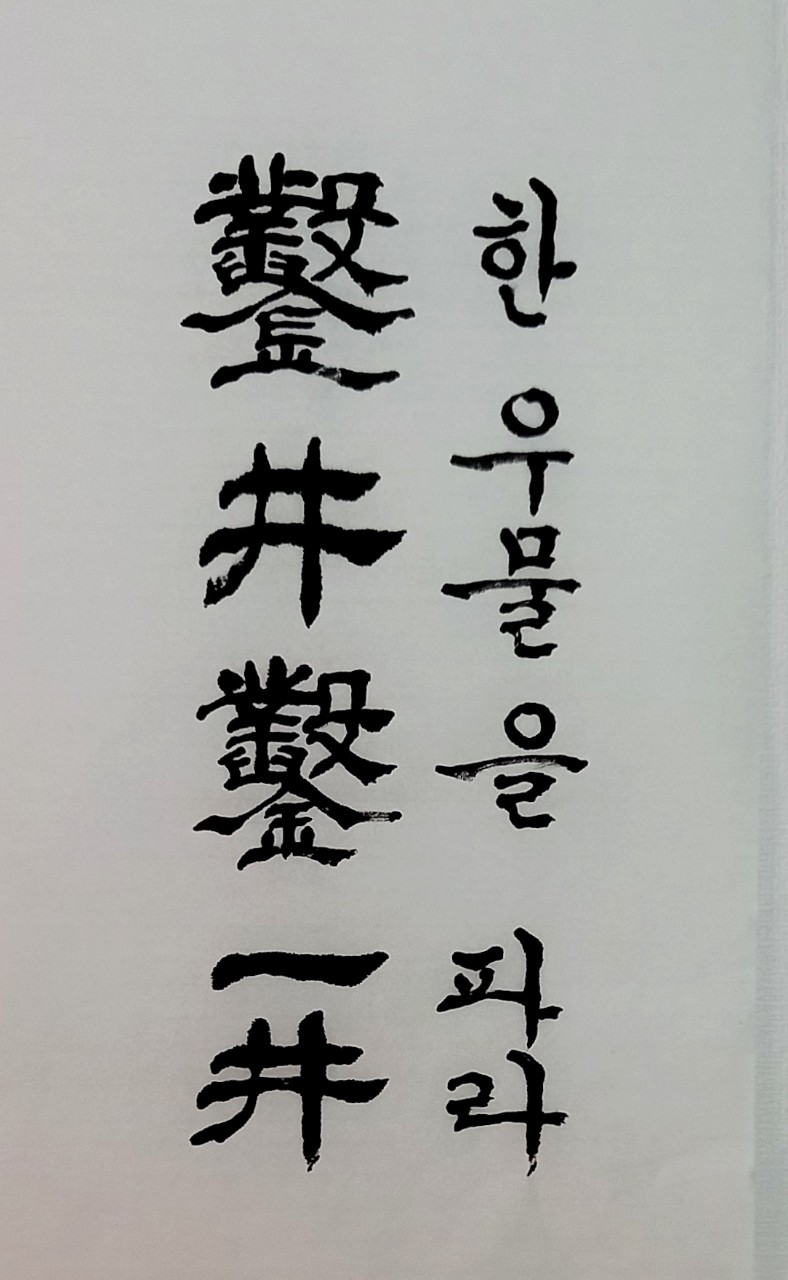 한 우물을 파라
鑿井鑿一井